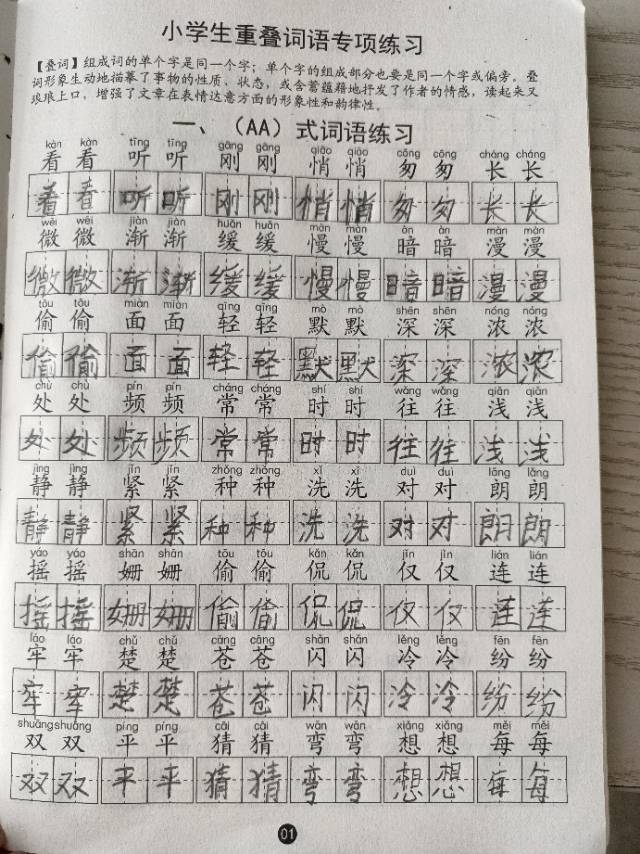 小学生重叠词语专项练习
【叠词】组成词的单个字是同一个字；单个字的组成部分也要是同一个字或偏旁。叠
词形象生动地描摹了事物的性质、状态，或含蓄蕴藉地抒发了作者的情感，读起来又
琅琅上口，增强了文章在表情达意方面的形象性和韵律性。
一、（AA）式词语练习
kàn kàn tīng tīng gāng gāng qiāo qiāo cōng cōng cháng cháng
看 看 听 听 刚 刚 悄 悄 匆 匆 长 长
看 看 听 听 刚 刚 悄 悄 匆 匆 长 长
wēi wēi jiàn jiàn huǎn huǎn màn màn àn àn màn màn
微 微 渐 渐 缓 缓 慢 慢 暗 暗 漫 漫
微 微 渐 渐 缓 缓 慢 慢 暗 暗 漫 漫
tōu tōu miàn miàn qīng qīng mò mò shēn shēn nóng nóng
偷 偷 面 面 轻 轻 默 默 深 深 浓 浓
偷 偷 面 面 轻 轻 默 默 深 深 浓 浓
chù chù pín pín cháng cháng shí shí wǎng wǎng qiǎn qiǎn
处 处 频 频 常 常 时 时 往 往 浅 浅
处 处 频 频 常 常 时 时 往 往 浅 浅
jìng jìng jǐn jǐn zhǒng zhǒng xǐ xǐ duì duì lǎng lǎng
静 静 紧 紧 种 种 洗 洗 对 对 朗 朗
静 静 紧 紧 种 种 洗 洗 对 对 朗 朗
yáo yáo shān shān tōu tōu kǎn kǎn jǐn jǐn lián lián
摇 摇 姗 姗 偷 偷 侃 侃 仅 仅 连 连
摇 摇 姗 姗 偷 偷 侃 侃 仅 仅 莲 莲
láo láo chǔ chǔ cāng cāng shǎn shǎn lěng lěng fēn fēn
牢 牢 楚 楚 苍 苍 闪 闪 冷 冷 纷 纷
牢 牢 楚 楚 苍 苍 闪 闪 冷 冷 纷 纷
shuāng shuāng píng píng cāi cāi wān wān xiǎng xiǎng měi měi
双 双 平 平 猜 猜 弯 弯 想 想 每 每
双 双 平 平 猜 猜 弯 弯 想 想 每 每
01